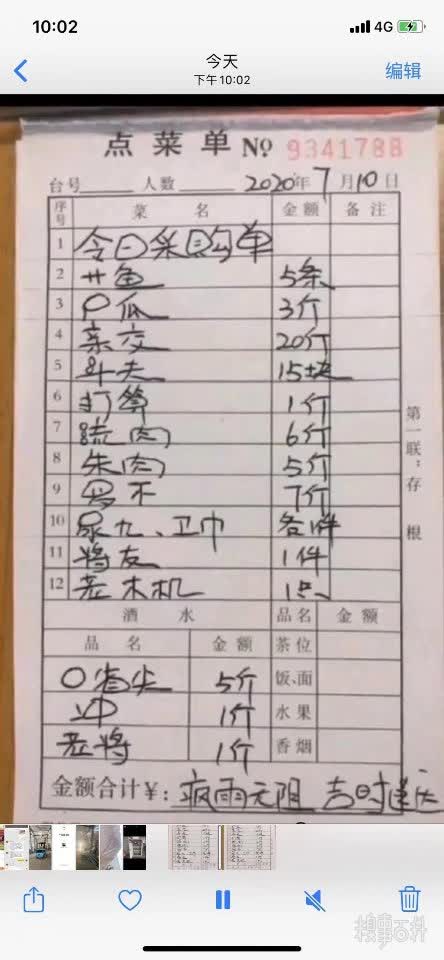 10:02 4G
今天
下午10:02
编辑
点菜单 No 9341788
台号 人数 2020年7月10日
序号 菜名 金额 备注
1 今日采购单
2 廿鱼 5条
3 口瓜 3斤
4 亲交 20斤
5 斗夫 15块
6 打算 1斤
7 跣肉 6斤
8 朱肉 5斤
9 罗不 7斤
10 尿九、卫巾 各1件
11 将友 1件
12 老木机 1只
第一联：存根
酒水 品名 金额
品名 金额 茶位
〇肖尖 5斤 饭、面
1斤 水果
老将 1斤 香烟
金额合计¥： 疯雨无阻 吉时送
糗事百科